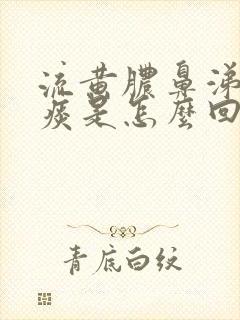 流黄脓鼻涕
痰是怎么回
青底白纹